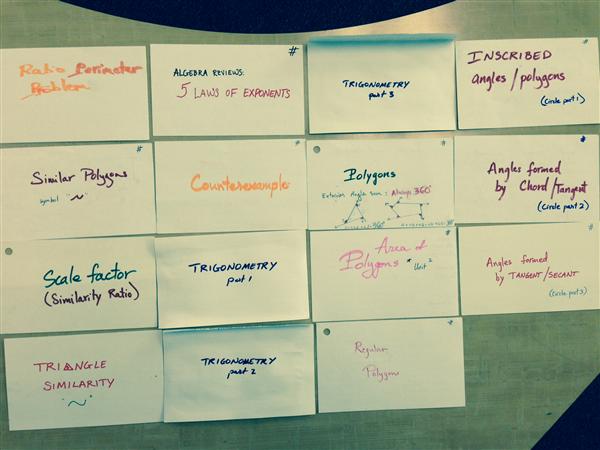 Ratio Perimeter
Problem
#
ALGEBRA REVIEWS:
5 LAWS OF EXPONENTS
TRIGONOMETRY
part 3
#
INSCRIBED
angles/polygons
(Circle part 1)
#
Similar Polygons
symbol "~"
#
Counterexample
Polygons
Exterior Angle sum: Always 360°
360°
Angles formed
by Chord/Tangent
(Circle part 2)
#
Scale factor
(Similarity Ratio)
TRIGONOMETRY
part 1
#
Area of
Polygons * Unit ²
#
Angles formed
by TANGENT/SECANT
(Circle part 3)
TRIANGLE
SIMILARITY
"~"
TRIGONOMETRY
part 2
Regular
Polygons